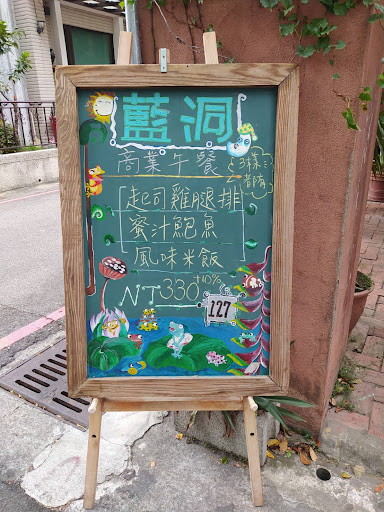 藍洞
商業午餐
3樣都有
起司雞腿排
蜜汁鮑魚
風味米飯
NT330 +10%
127